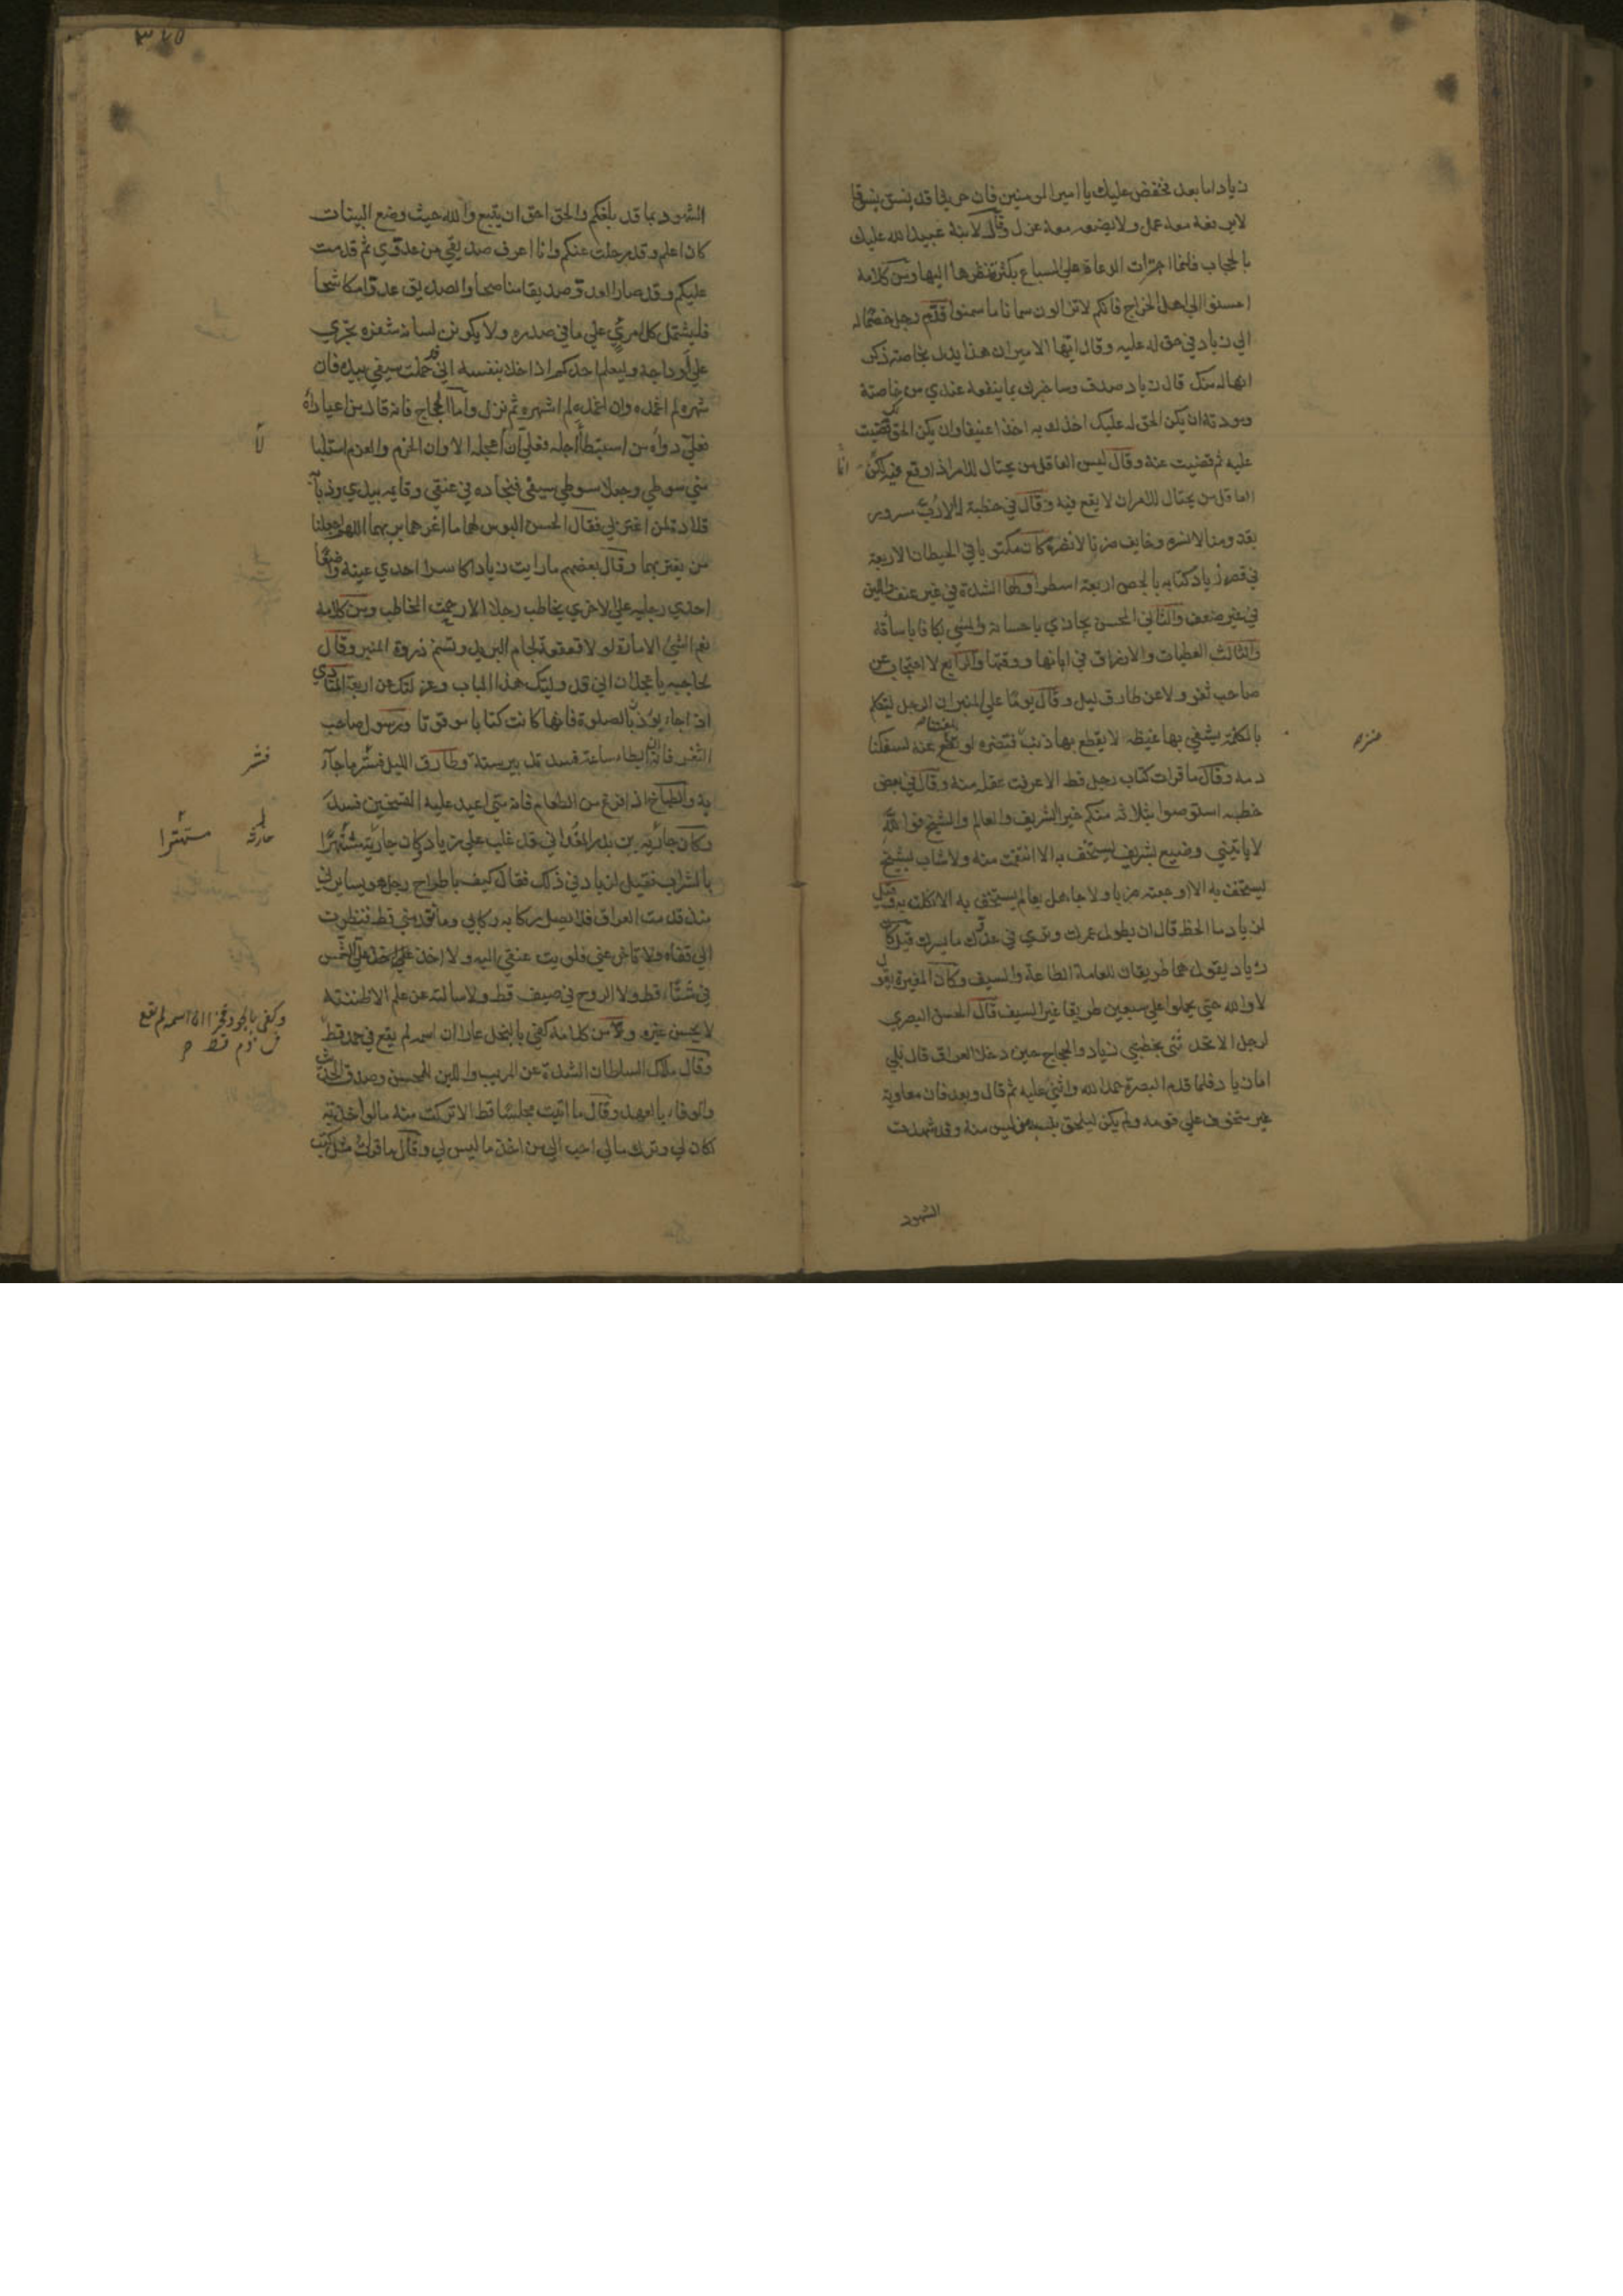 زياد اما بعد فخفض عليك يا امير المومنين فان حريثا قد بسق بسوقا
لا يرفعه معه عمل ولا يضعه معه عزل وقال لابنه عبيد الله عليك
بالحجاب فانما اجترات الرعاة على السباع بكثرة نظرها اليها ومن كلامه
احسنوا الى اهل الخراج فانكم لا تزالون سمانا ما سمنوا قدم رجل خصما له
الى زياد في حق له عليه وقال ايها الامير ان هذا يدل بخاصة ذكر
انها له منك قال زياد صدق وساخبرك بما ينفعه عندي من خاصته
ومودته ان يكن الحق له عليك اخذك به اخذا عنيفا وان يكن الحق لك قضيت
عليه ثم قضيت عنه وقال ليس العاقل من يحتال للامر اذا وقع فيه لكن
العاقل من يحتال للامر ان لا يقع فيه وقال في خطبة له الا رب مسرور
بقدومنا لا نسره وخايف ضرنا لا نضره كان مكتوبا في الحيطان الاربعة
في قصر زياد كتابه بالجص اربعة اسطر اولها الشدة في غير عنف واللين
في غير ضعف والثاني المحسن يجازى باحسانه والمسي يكافا باساته
والثالث العطيات والارزاق في ابانها ووقتها والرابع لا احتجاب عن
صاحب ثغر ولا عن طارق ليل وقال يوما على المنبر ان الرجل ليتكلم
بالكلمة يشفي بها غيظه لا يقطع بها ذنب عنز فتضره لو بلغتنا عنه لسفكنا
دمه وقال ما قرات كتاب رجل قط الا عرفت عقله منه وقال في بعض
خطبه استوصوا بثلاثة منكم خيرا الشريف والعالم والشيخ فوالله
لا ياتيني وضيع بشريف يستخف به الا انتقمت منه ولا شاب بشيخ
يستخف به الا اوجعته ضربا ولا جاهل بعالم يستخف به الا نكلت به وقيل
لزياد ما الحظ قال ان يطول عمرك وترى في عدوك ما يسرك قيل كان
زياد يقول هما طريقان للعامة الطاعة والسيف وكان المغيرة يقول
لا والله حتى يحملوا على سبعين طريقا غير السيف قال الحسن البصري
لرجل الا تحدثني بخطبتي زياد والحجاج حين دخلا العراق قال بلى
اما زياد فلما قدم البصرة حمد الله واثنى عليه ثم قال وبعد فان معاوية
غير متخوف على قومه ولم يكن ليلحق بنسبه من ليس منه وقد شهدت
الشهود
٣٤٥
الشهود بما قد بلغكم والحق احق ان يتبع والله حيث وضع البينات
كان اعلم وقد رحلت عنكم وانا اعرف صديقي من عدوي ثم قدمت
عليكم وقد صار العدو صديقا مناصحا والصديق عدوا مكاشحا
فليشتمل كل امرئ على ما في صدره ولا يكونن لسانه شفرة تجري
على اوداجه وليعلم احدكم اذا خلا بنفسه اني قد حملت سيفي بيدي فان
شهره لم اغمده وان اغمده لم اشهره ثم نزل واما الحجاج فانه قال من اعياه داؤه
فعلي دواؤه من استبطا اجله فعلي ان اعجله الا وان الحزم والعزم استلبا
مني سوطي وجعلا سوطي سيفي فنجاده في عنقي وقايمه بيدي وذبابه
قلادة لمن اغتر بي فقال الحسن البوس لهما ما اغرهما بربهما اللهم اجعلنا
من يعتبر بهما وقال بعضهم ما رايت زيادا كاسرا احدى عينيه واضعا
احدى رجليه على الاخرى يخاطب رجلا الا رحمت المخاطب ومن كلامه
نعم الشي الامارة لو لا قعقعة لجام البريد وتسنم ذروة المنبر وقال
لحاجبه يا عجلان اني قد وليتك هذا الباب وعزلتك عن اربعة المنادي
اذا جاء يوذن بالصلوة فانها كانت كتابا موقوتا ورسول صاحب
الثغر فانه ان ابطا ساعة فسد تدبير سنة وطارق الليل فشر ما جاء
به والطباخ اذا فرغ من الطعام فانه متى اعيد عليه التسخين فسد
وكان حارثة بن بدر الغداني قد غلب على زياد وكان حارثة مشتهرا
بالشراب فقيل لزياد في ذلك فقال كيف باطراح رجل هو يسايرني
منذ قدمت العراق فلا يصل ركابه ركابي وما تقدمني قط فنظرت
الى قفاه ولا تاخر عني فلويت عنقي اليه ولا اخذ علي الشمس
في شتاء قط ولا الروح في صيف قط ولا سالته عن علم الا ظننته
لا يحسن غيره ومن كلامه كفى بالبخل عارا ان اسمه لم يقع في حمد قط
وقال ملاك السلطان الشدة على المريب واللين للمحسن وصدق الحديث
والوفاء بالعهد وقال ما اتيت مجلسا قط الا تركت منه ما لو اخذته
كان لي وترك ما لي احب الي من اخذ ما ليس لي وقال ما قرات مثل كتب
فشر
حارثة
مستهترا
وكفى بالجود فخرا ان اسمه لم يقع
في ذم قط